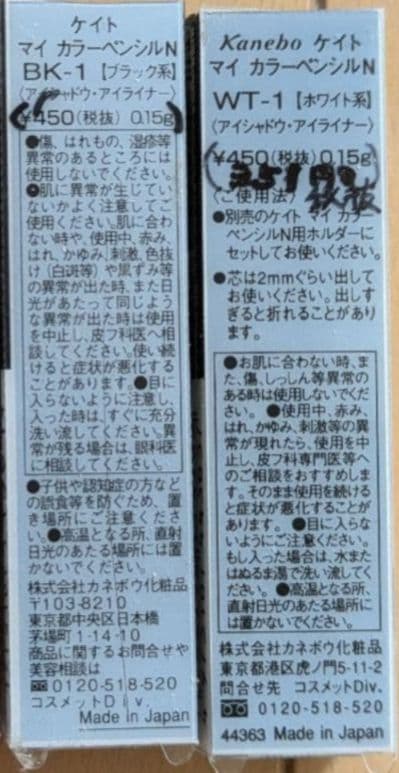 ケイト
マイ カラーペンシルN
BK-1【ブラック系】
〈アイシャドウ・アイライナー〉
¥450(税抜) 0.15g
●傷、はれもの、湿疹等
異常のあるところには
使用しないでください。
●肌に異常が生じてい
ないかよく注意してご
使用ください。肌に合わ
ない時や、使用中、赤み、
はれ、かゆみ、刺激、色抜
け(白斑等)や黒ずみ等
の異常が出た時、また日
光があたって同じよう
な異常が出た時は使用
を中止し、皮フ科医へ相
談してください。使い続
けると症状が悪化する
ことがあります。●目に
入らないように注意し、
入った時は、すぐに充分
洗い流してください。異
常が残る場合は、眼科医
に相談してください。
●子供や認知症の方など
の誤食等を防ぐため、置
き場所にご注意くださ
い。●高温となる所、直射
日光のあたる場所には置
かないでください。
株式会社カネボウ化粧品
〒103-8210
東京都中央区日本橋
茅場町1-14-10
商品に関するお問合せや
美容相談は
0120-518-520
コスメットDiv.
Made in Japan
Kanebo ケイト
マイ カラーペンシルN
WT-1【ホワイト系】
〈アイシャドウ・アイライナー〉
¥450(税抜) 0.15g
税抜
〈ご使用法〉
●別売のケイト マイ カラー
ペンシルN用ホルダーに
セットしてお使いください。
●芯は2mmぐらい出して
お使いください。出しす
ぎると折れることがあり
ます。
●お肌に合わない時、ま
た、傷、しっしん等異常の
ある時は使用しないでくだ
さい。●使用中、赤み、は
れ、かゆみ、刺激等の異
常が現れたら、使用を中
止し、皮フ科専門医等へ
のご相談をおすすめしま
す。そのまま使用を続ける
と症状が悪化することが
あります。●目に入らな
いようにご注意ください。
もし入った場合は、水また
はぬるま湯で洗い流してく
ださい。●高温となる所、
直射日光のあたる場所に
は置かないでください。
株式会社カネボウ化粧品
東京都港区虎ノ門5-11-2
問合せ先 コスメットDiv.
0120-518-520
44363 Made in Japan